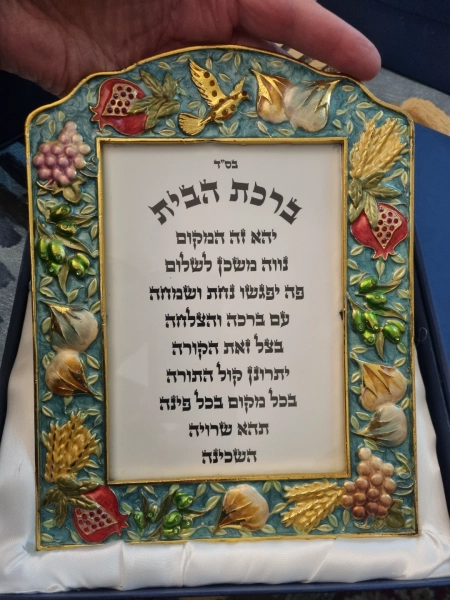 בס"ד
ברכת הבית
יהא זה המקום
נווה משכן לשלום
פה יפגשו נחת ושמחה
עם ברכה והצלחה
בצל זאת הקורה
יתרונן קול התורה
בכל מקום בכל פינה
תהא שרויה
השכינה